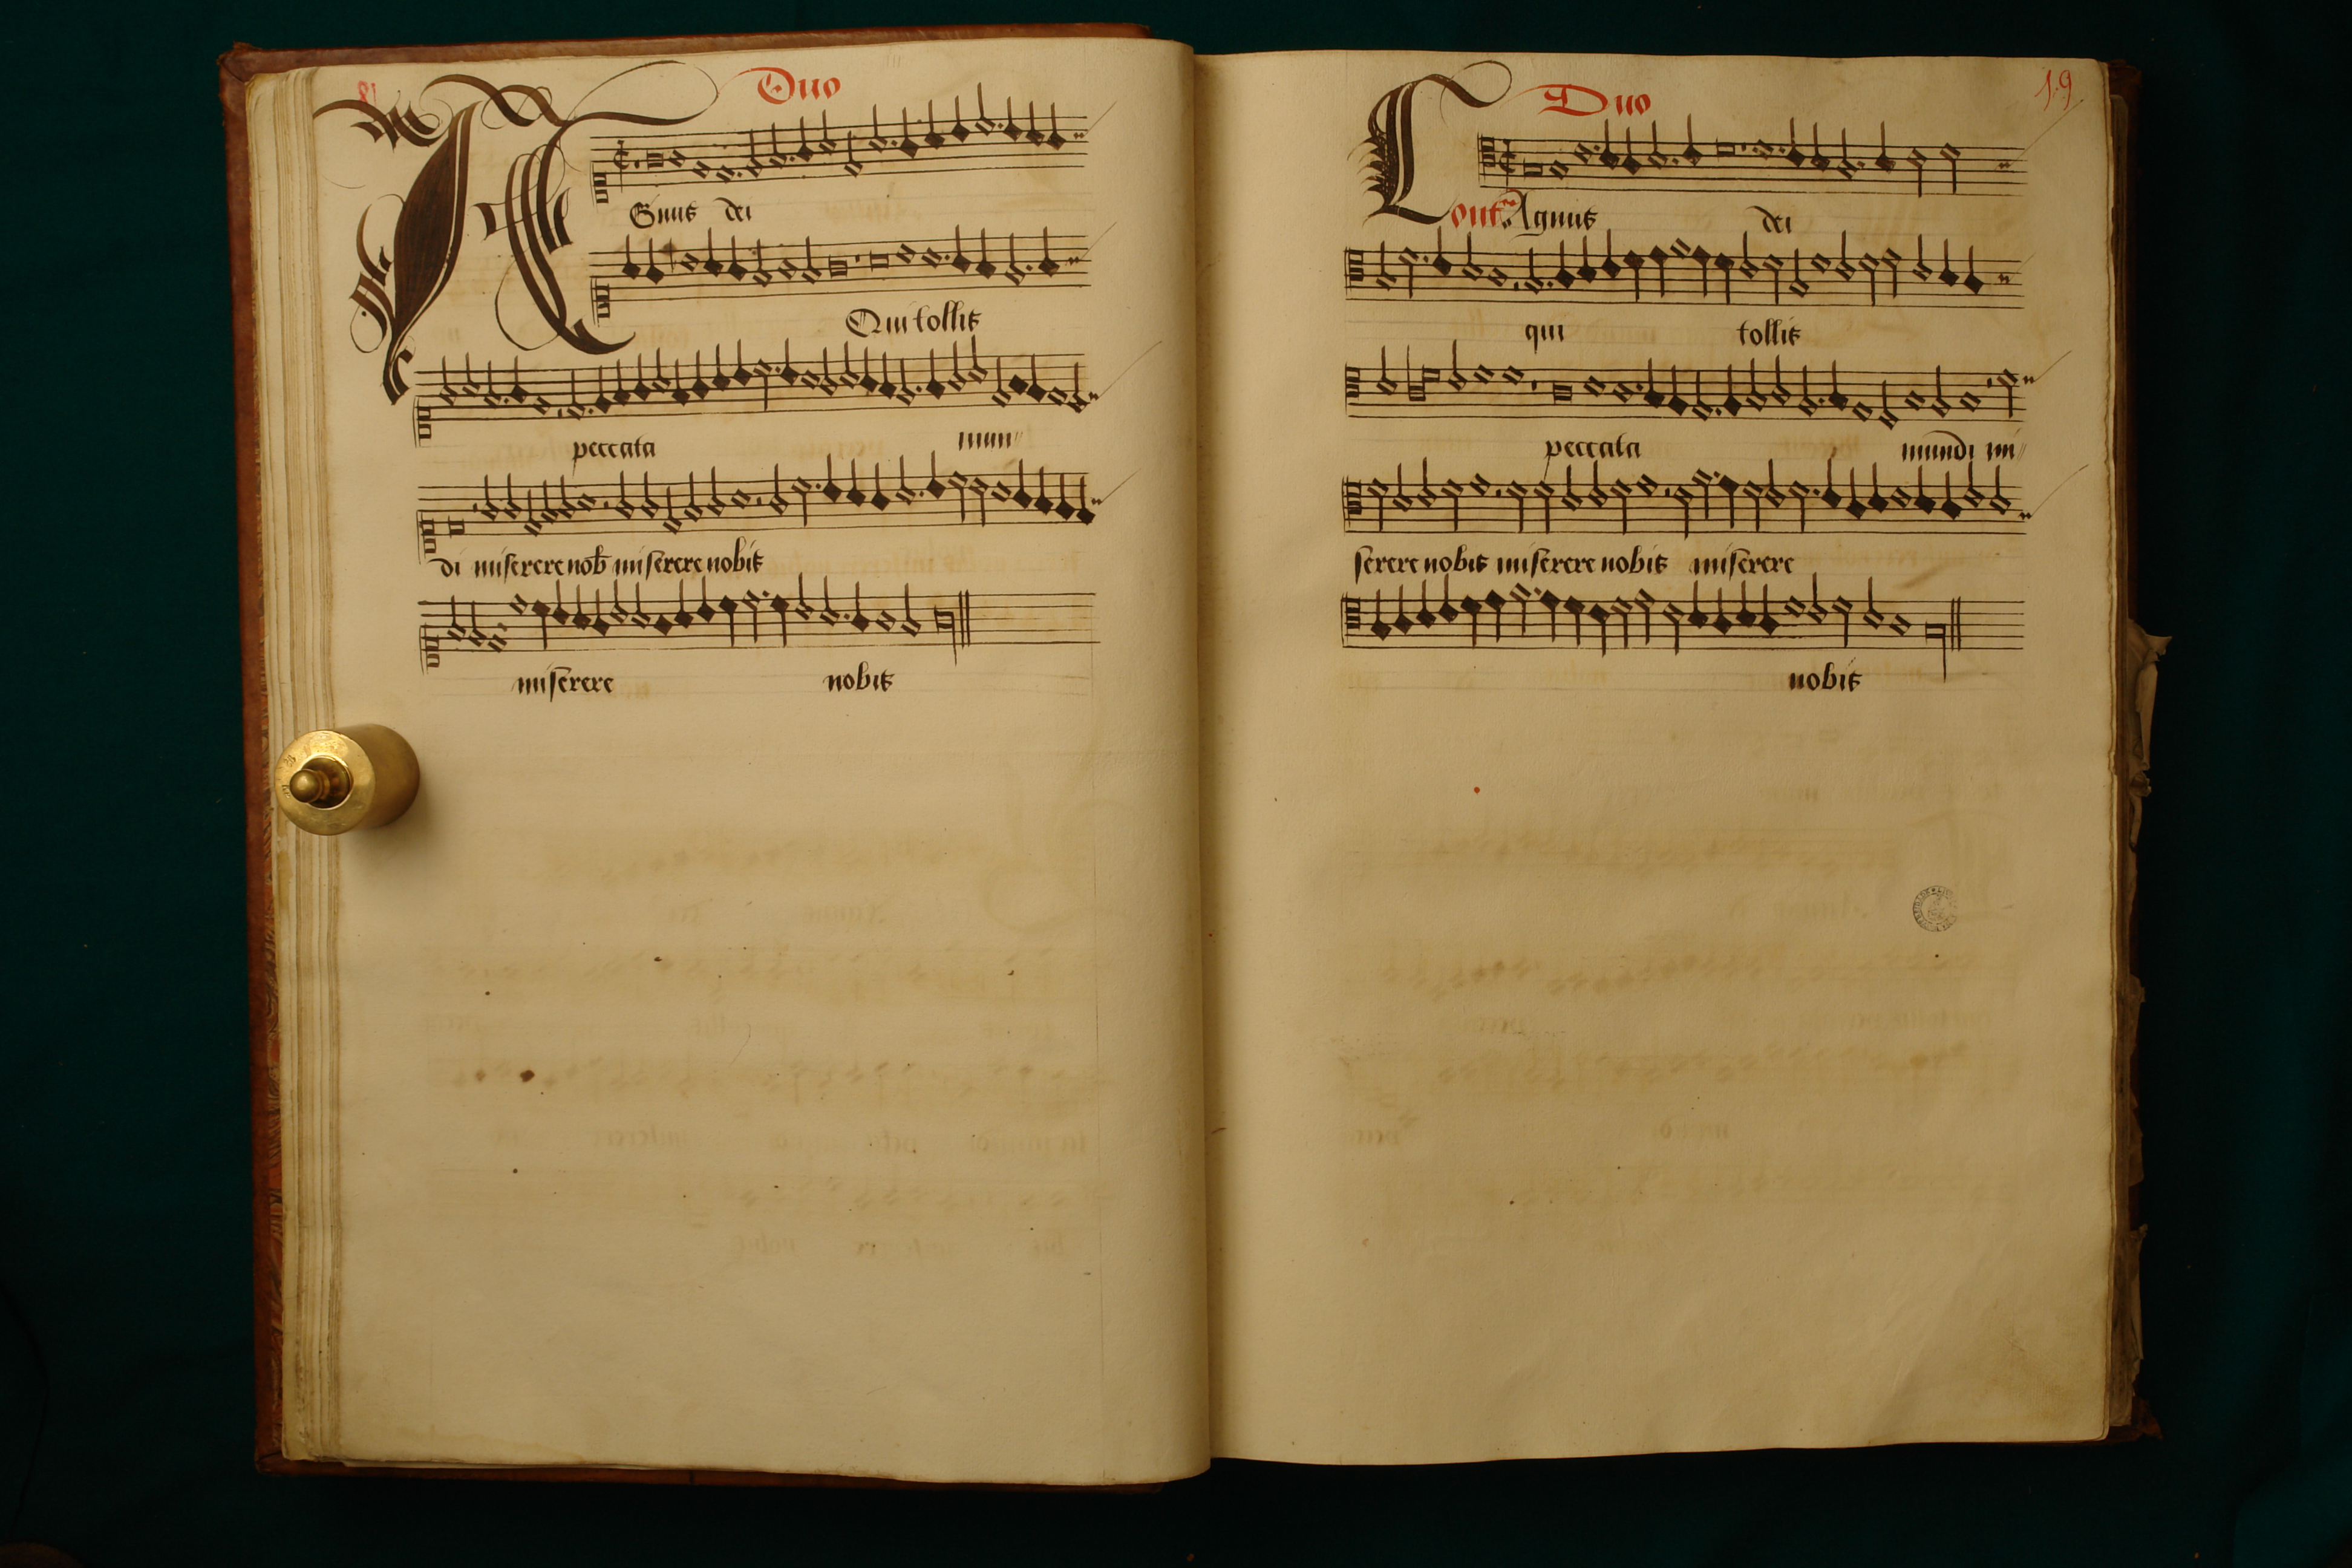 Duo
Agnus dei
Qui tollis
peccata mun
di miserere nob miserere nobis
miserere nobis
19
Duo
Cont Agnus dei
qui tollis
peccata mundi mi
serere nobis miserere nobis miserere
nobis